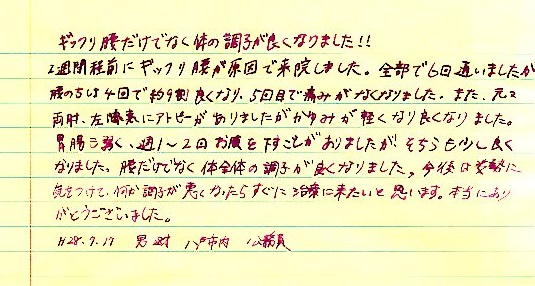 ギックリ腰だけでなく体の調子が良くなりました!!
2週間程前にギックリ腰が原因で来院しました。全部で6回通いましたが
腰のちは4回で約9割良くなり、5回目で痛みがなくなりました。また、元々
両肘、左膝裏にアトピーがありましたがかゆみが軽くなり良くなりました。
胃腸も弱く、週1~2回お腹を下すことがありましたが、そちらも少し良く
なりました。腰だけでなく体全体の調子が良くなりました。今後は姿勢に
気をつけて、何か調子が悪くなったらすぐに治療に来たいと思います。本当にあり
がとうございました。
H28.9.17 男 八戸市内 公務員